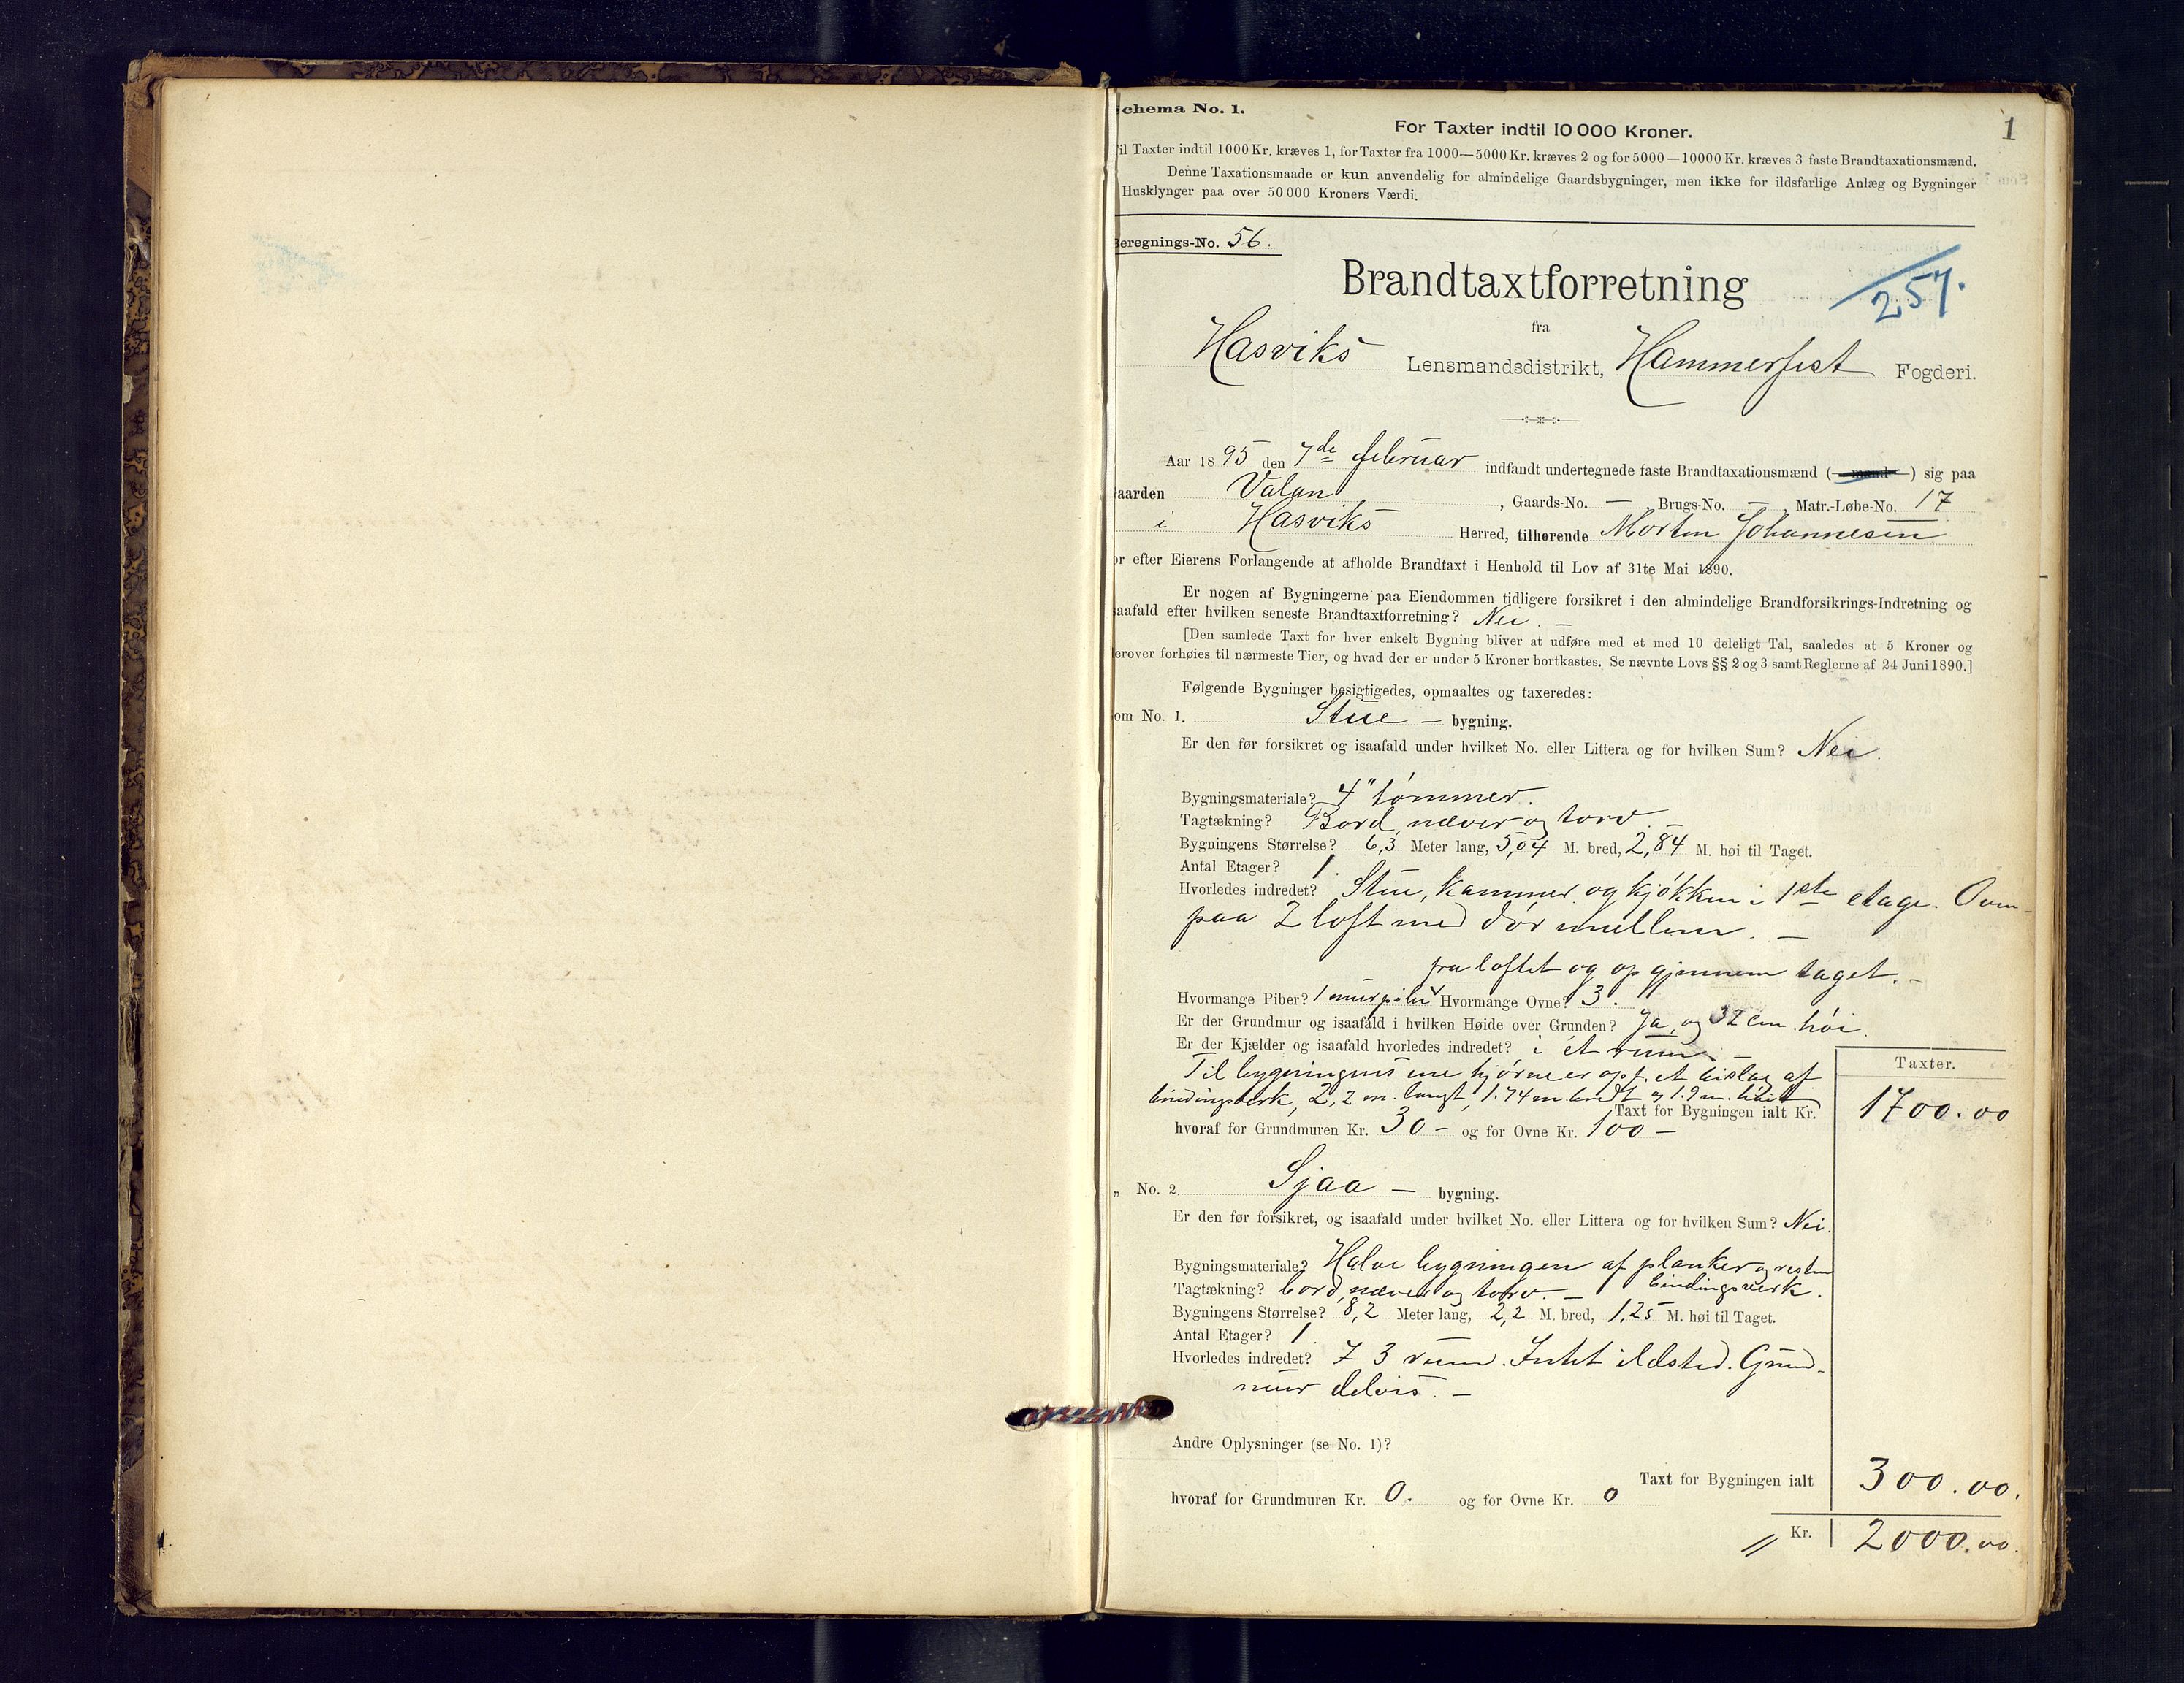 1
chema No. 1.
For Taxter indtil 10 000 Kroner.
il Taxter indtil 1000 Kr. kræves 1, for Taxter fra 1000—5000 Kr. kræves 2 og for 5000—10000 Kr. kræves 3 faste Brandtaxationsmænd.
Denne Taxationsmaade er kun anvendelig for almindelige Gaardsbygninger, men ikke for ildsfarlige Anlæg og Bygninger
Husklynger paa over 50 000 Kroners Værdi.
Beregnings-No. 56.
Brandtaxtforretning
257.
fra
Hasviks Lensmandsdistrikt, Hammerfest Fogderi.
Aar 1895 den 7de februar indfandt undertegnede faste Brandtaxationsmænd (—mand—) sig paa
aarden Valan, Gaards-No. — Brugs-No. — Matr.-Løbe-No. 17
i Hasviks Herred, tilhørende Morten Johannesen
or efter Eierens Forlangende at afholde Brandtaxt i Henhold til Lov af 31te Mai 1890.
Er nogen af Bygningerne paa Eiendommen tidligere forsikret i den almindelige Brandforsikrings-Indretning og
saafald efter hvilken seneste Brandtaxtforretning? Nei. —
[Den samlede Taxt for hver enkelt Bygning bliver at udføre med et med 10 deleligt Tal, saaledes at 5 Kroner og
erover forhøies til nærmeste Tier, og hvad der er under 5 Kroner bortkastes. Se nævnte Lovs §§ 2 og 3 samt Reglerne af 24 Juni 1890.]
Følgende Bygninger besigtigedes, opmaaltes og taxeredes:
om No. 1. Stue — bygning.
Er den før forsikret og isaafald under hvilket No. eller Littera og for hvilken Sum? Nei.
Bygningsmateriale? 4" tømmer.
Tagtækning? Bord, næver og torv.
Bygningens Størrelse? 6,3 Meter lang, 5,04 M. bred, 2,84 M. høi til Taget.
Antal Etager? 1.
Hvorledes indredet? Stue, kammer og kjøkken i 1ste etage. Oven-
paa 2 loft med dør mellem. —
fra loftet og op gjennem taget. —
Hvormange Piber? 1 murpibe Hvormange Ovne? 3.
Er der Grundmur og isaafald i hvilken Høide over Grunden? Ja, og 32 cm. høi.
Er der Kjælder og isaafald hvorledes indredet? i et rum —
Taxter.
Til bygningens ene hjørne er opf. et bislag af
bindingsverk, 2,2 m. langt, 1.74 m. bredt og 1.9 m. høit
Taxt for Bygningen ialt Kr. 1700.00
hvoraf for Grundmuren Kr. 30 — og for Ovne Kr. 100 —
„ No. 2 Sjaa — bygning.
Er den før forsikret, og isaafald under hvilket No. eller Littera og for hvilken Sum? Nei.
Bygningsmateriale? Halve bygningen af planker og resten
bindingsverk.
Tagtækning? bord, næver og torv. —
Bygningens Størrelse? 8,2 Meter lang, 2,2 M. bred, 1,25 M. høi til Taget.
Antal Etager? 1.
Hvorledes indredet? I 3 rum. Intet ildsted. Grund-
mur delvis. —
Andre Oplysninger (se No. 1)?
Taxt for Bygningen ialt 300.00.
hvoraf for Grundmuren Kr. 0. og for Ovne Kr. 0
Kr. 2000.00.